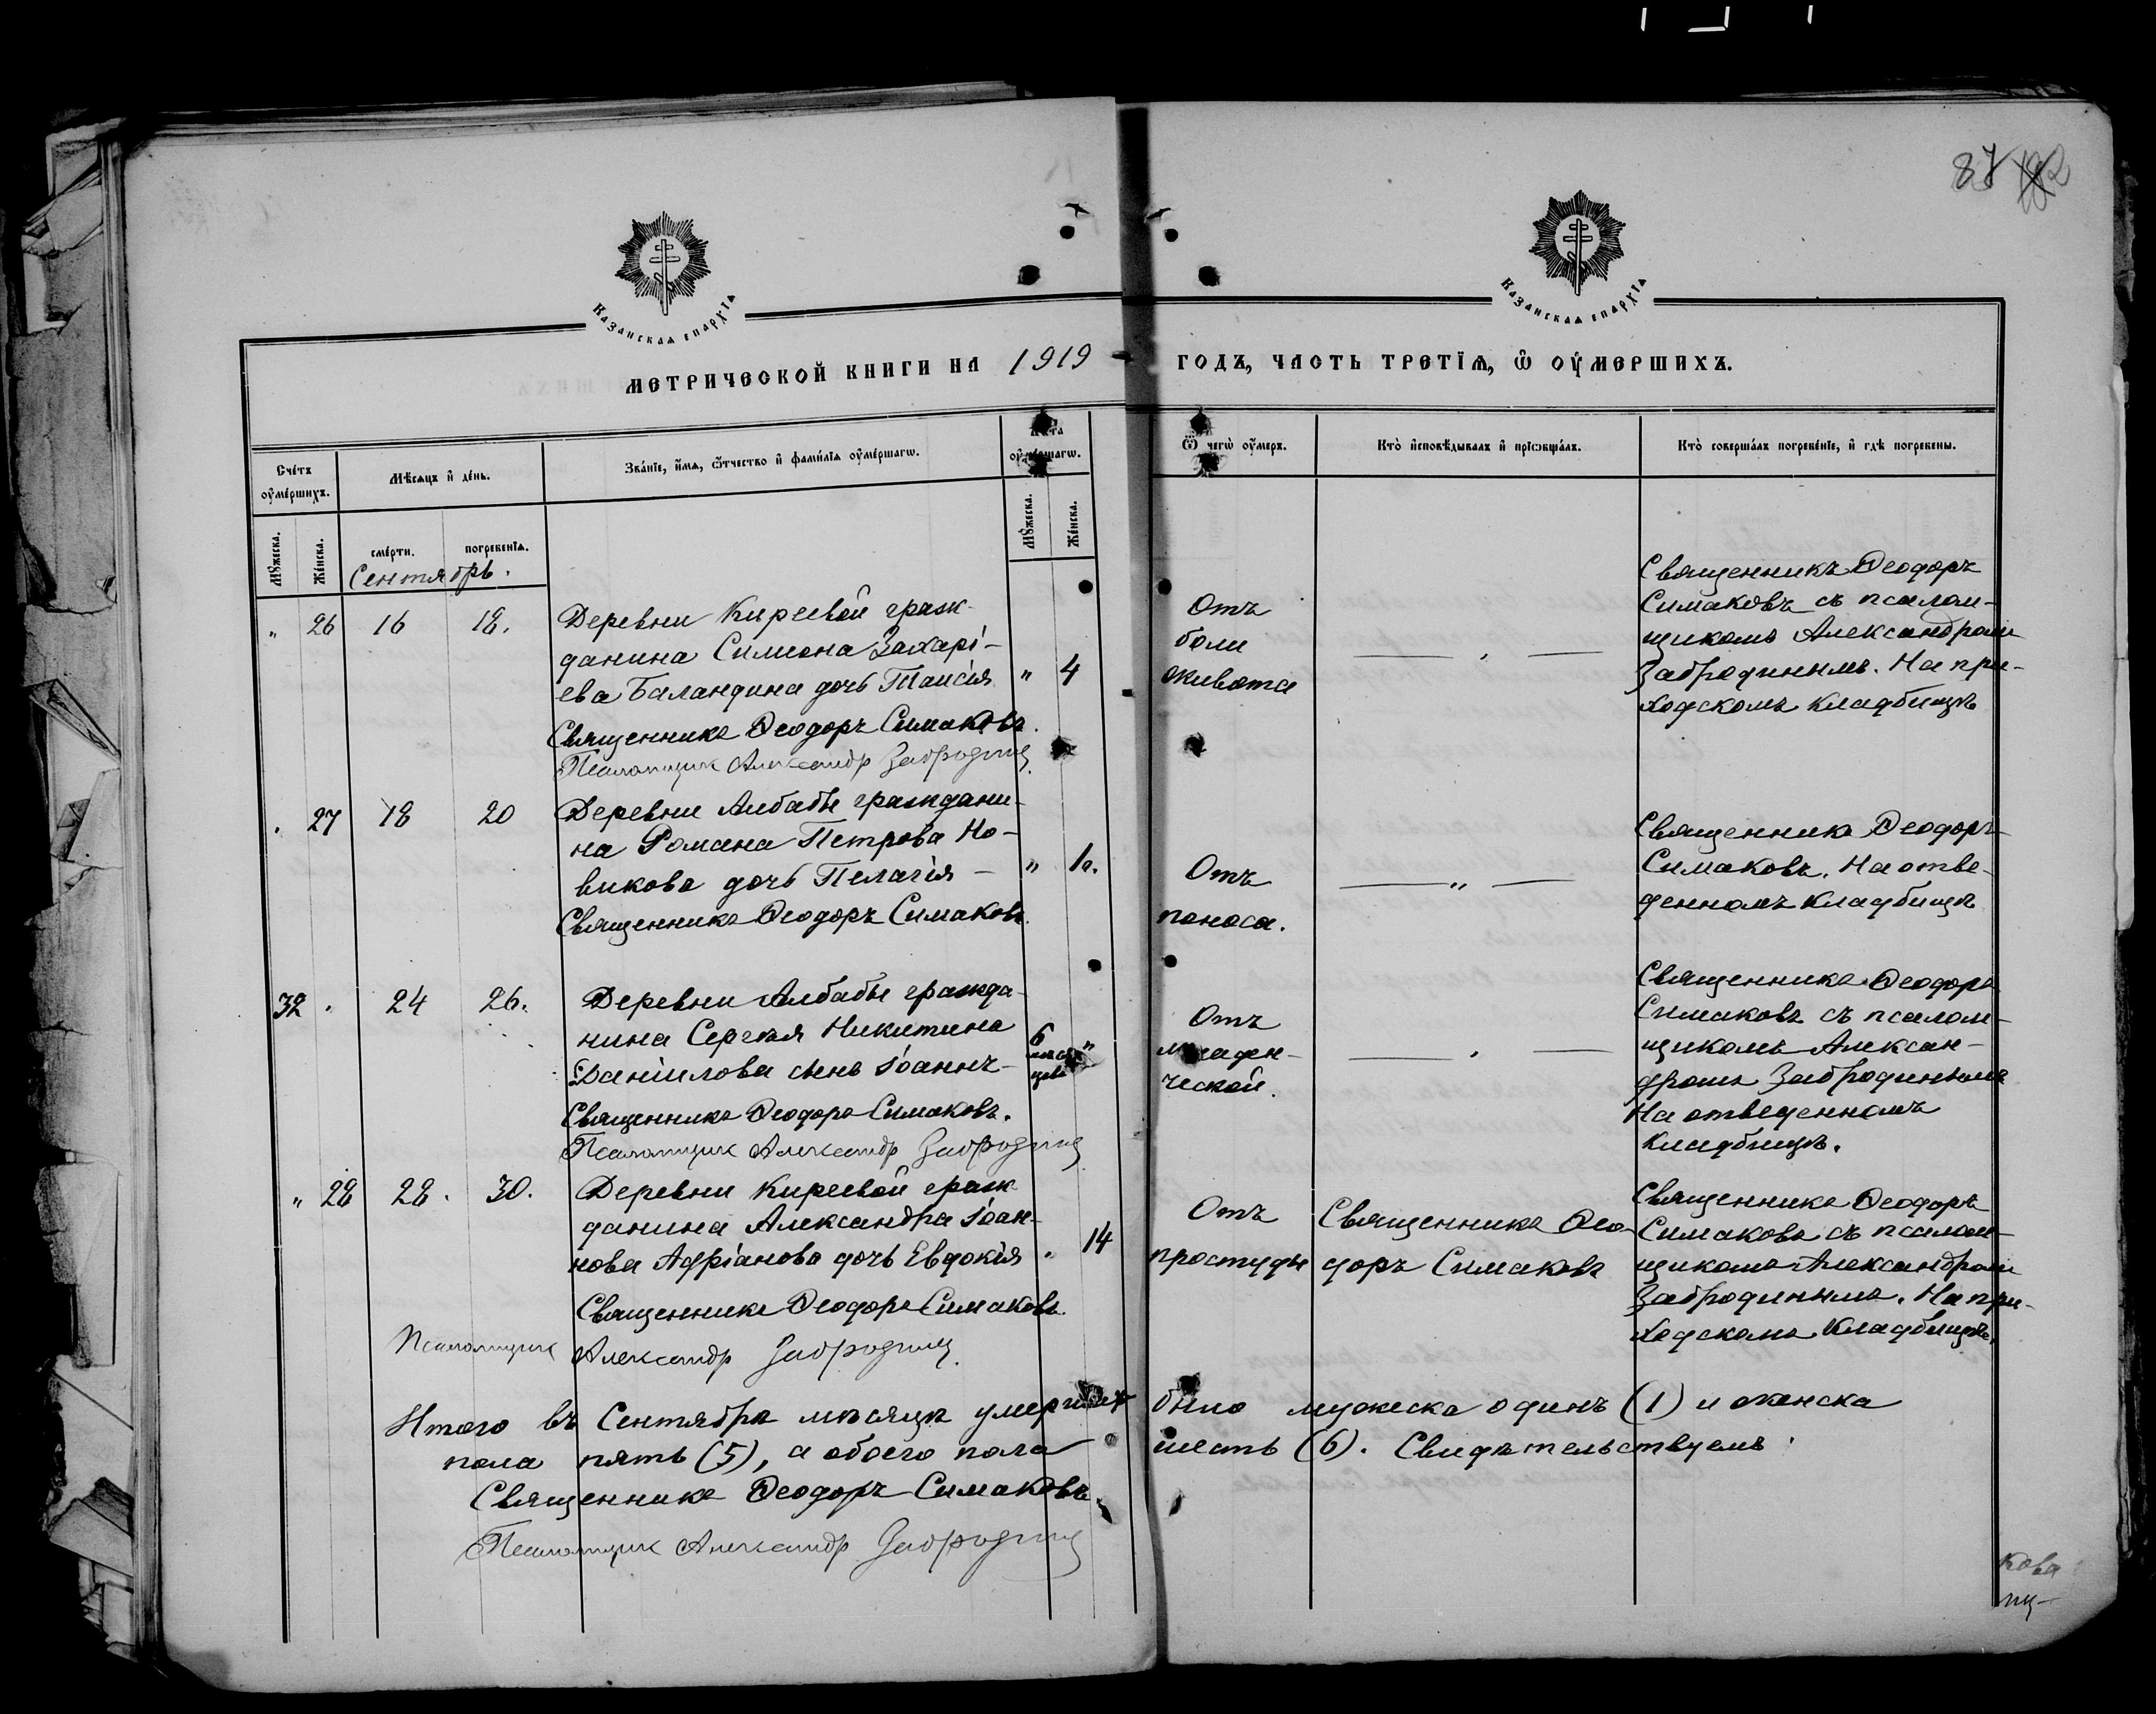 87 182
Казанская епархїѧ
Казанская епархїѧ
МЕТРИЧЕСКОЙ КНИГИ НА 1919 ГОДЪ, ЧАСТЬ ТРЕТЇѦ, Ѡ ОУМЕРШИХЪ.
Сче́тъ оу҆ме́ршихъ.
Мѣсѧцъ и҆ де́нь.
Зва́нїе, и҆́мѧ, ѻ҆́тчество и҆ фами́лїа оу҆ме́ршагѡ.
Лѣта оу҆ме́ршагѡ.
Ѿ чегѡ̀ оу҆́меръ.
Кто̀ и҆сповѣ́дывалъ и҆ прїѡбща́лъ.
Кто̀ соверша́лъ погребе́нїе, и҆ гдѣ̀ погребены.
Мꙋ́жеска.
Же́нска.
сме́рти.
погребенїѧ.
Мꙋ́жеска.
Же́нска.
Сентябрь.
" 26 16 18.
Деревни Киреевой граж-
данина Симеона Захарі-
ева Баландина дочь Таисія " 4
Священникъ Ѳеодоръ Симаковъ.
Псаломщик Александр Забродин
Отъ
боли
живота
— " —
Священникъ Ѳеодоръ
Симаковъ съ псалом-
щикомъ Александромъ
Забродинымъ. На при-
ходскомъ кладбищѣ
" 27 18 20
Деревни Албабы граждани-
на Романа Петрова Но-
викова дочь Пелагія — " 1г.
Священникъ Ѳеодоръ Симаковъ.
Отъ
поноса.
— " —
Священникъ Ѳеодоръ
Симаковъ. На отве-
денномъ кладбищѣ
32 " 24 26.
Деревни Албабы гражда-
нина Сергѣя Никитина
Даніилова сынъ Іоаннъ —
6 мѣся-
цевъ "
Священникъ Ѳеодоръ Симаковъ.
Псаломщик Александр Забродин
Отъ
младен-
ческой.
— " —
Священникъ Ѳеодоръ
Симаковъ съ псалом-
щикомъ Алексан-
дромъ Забродинымъ
На отведенномъ
кладбищѣ.
" 28 28. 30.
Деревни Киреевой граж-
данина Александра Іоан-
нова Адріанова дочь Евдокія " 14
Священникъ Ѳеодоръ Симаковъ.
Псаломщик Александр Забродин.
Отъ
простуды
Священникъ Ѳео-
доръ Симаковъ
Священникъ Ѳеодоръ
Симаковъ съ псалом-
щикомъ Александромъ
Забродинымъ. На при-
ходскомъ кладбищѣ.
Итого въ Сентябрѣ мѣсяцѣ умершихъ было мужеска одинъ (1) и женска
пола пять (5), а обоего пола шесть (6). Свидѣтельствуемъ:
Священникъ Ѳеодоръ Симаковъ.
Псаломщик Александр Забродин
кова
щ-